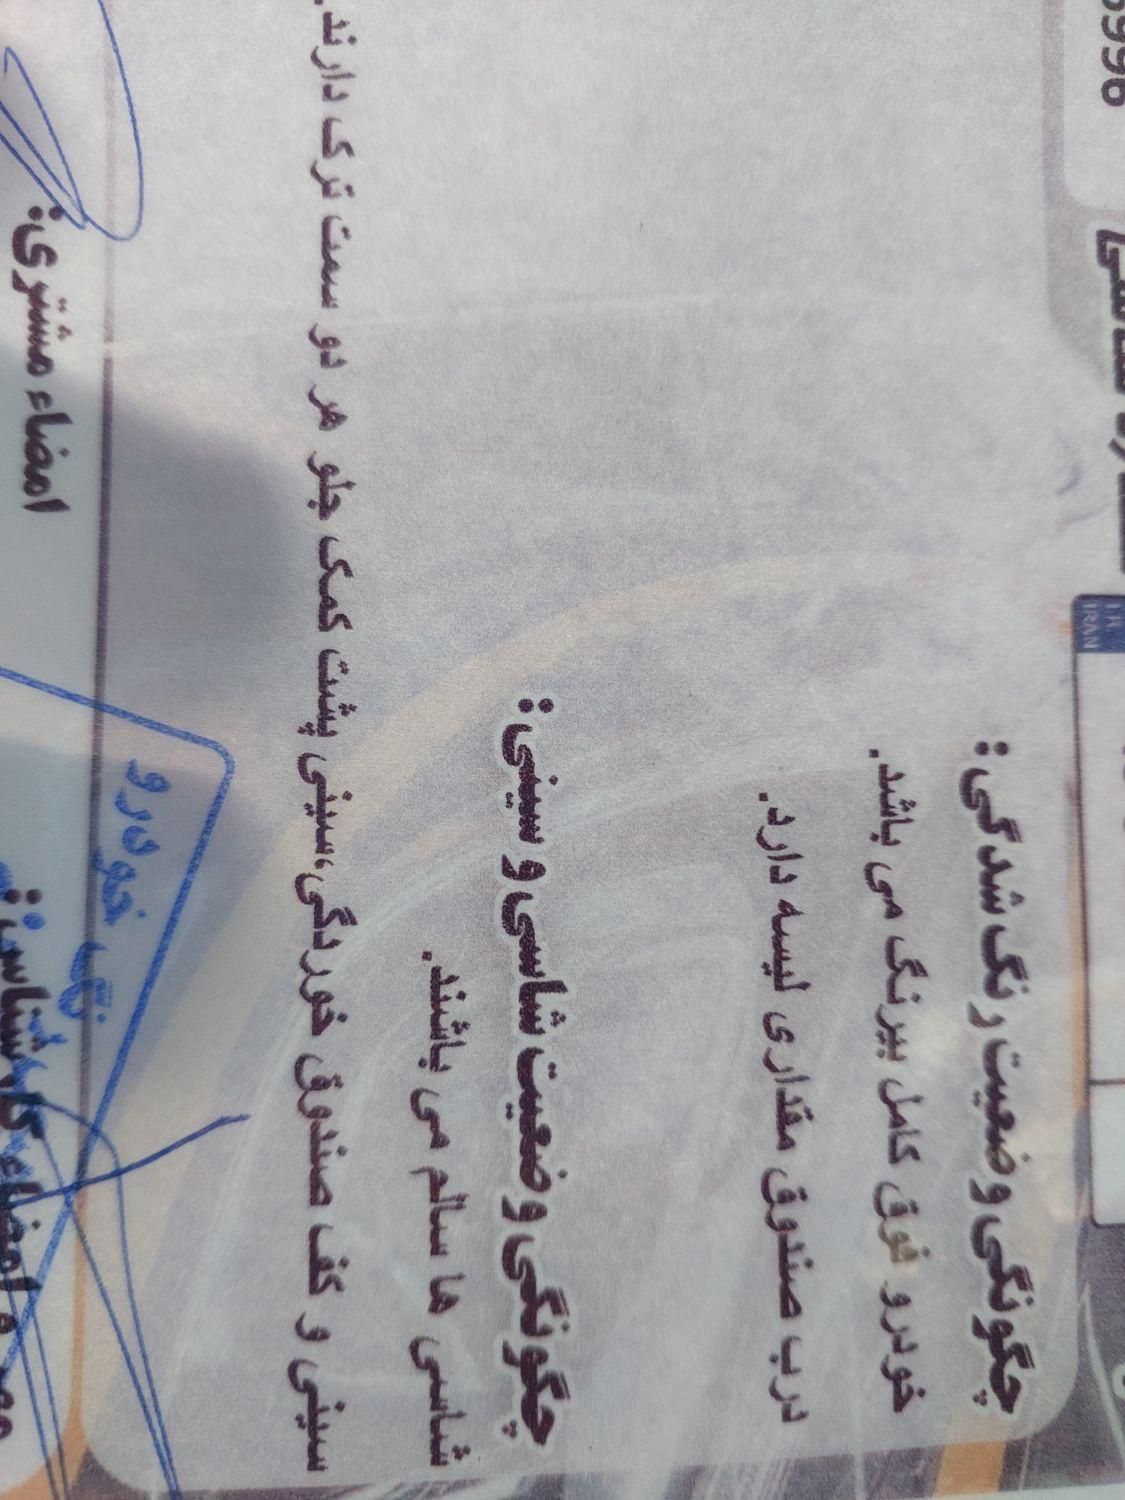 چگونگی وضعیت رنگ شدگی:
خودرو فوق کامل بیرنگ می باشد.
درب صندوق مقداری لیسه دارد.
چگونگی وضعیت شاسی و سینی:
شاسی ها سالم می باشند.
سینی و کف صندوق خوردگی،سینی پشت کمک جلو هر دو سمت ترک دارند.
امضاء کارشناس:
امضاء مشتری:
خودرو
I.R.
IRAN